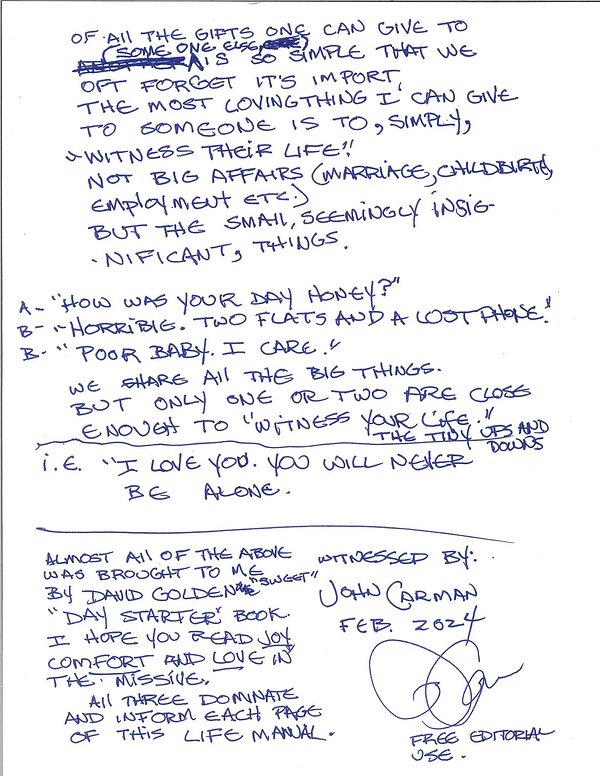 OF All THE GIFTS ONE CAN GIVE TO
(SOME ONE ELSE,
IS SO SIMPLE THAT WE
OFT FORGET IT'S IMPORT.
THE MOST LOVING THING I CAN GIVE
TO SOMEONE IS TO, SIMPLY,
"WITNESS THEIR LIFE."
NOT BIG AFFAIRS (MARRIAGE, CHILDBIRTH,
EMPLOYMENT ETC.)
BUT THE SMAll, SEEMINGLY INSIG-
NIFICANT, THINGS.
A- "HOW WAS YOUR DAY HONEY?"
B- "HORRIBlE. TWO FLATS AND A LOST PHONE."
B- "POOR BABY. I CARE."
WE SHARE All THE BIG THINGS.
BUT ONLY ONE OR TWO ARE CLOSE
ENOUGH TO "WITNESS YOUR LIFE."
THE TINY UPS AND
DOWNS
i.E. "I LOVE YOU. YOU WILL NEVER
BE ALONE.
ALMOST All OF THE ABOVE
WAS BROUGHT TO ME
BY DAVID GOLDEN "SWEET"
"DAY STARTER" BOOK.
I HOPE YOU READ JOY
COMFORT AND LOVE IN
THE MISSIVE.
All THREE DOMINATE
AND INFORM EACH PAGE
OF THIS LIFE MANUAL.
WITNESSED BY:
JOHN CARMAN
FEB. 2024
FREE EDITORIAL
USE.